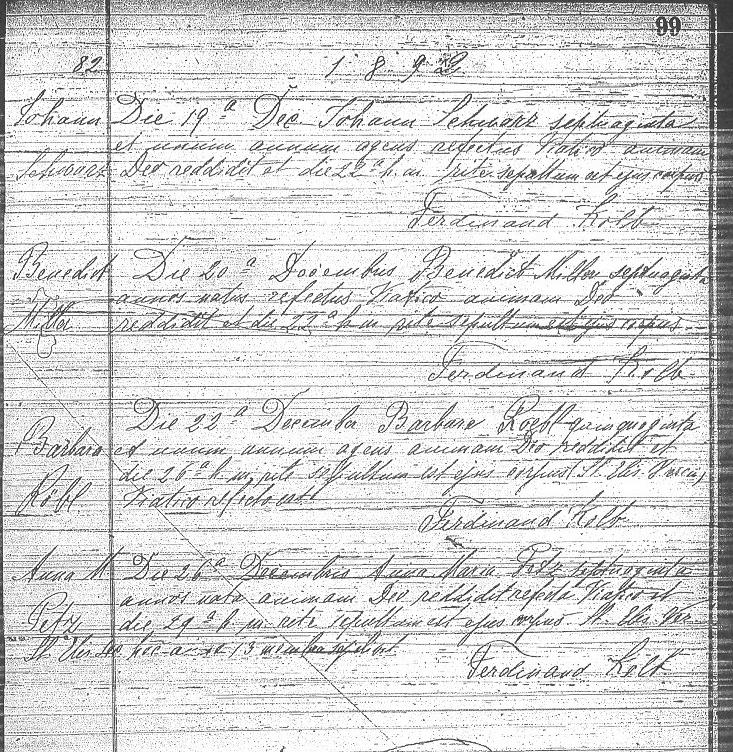 99
82 1 8 9 2
Johann Die 19ª Dec Johann Schwarz septuaginta
et unum annum agens refectus Viatico animam
Schwarz Deo reddidit et die 22ª h. m. rite sepultum est ejus corpus
Ferdinand Kolb
Benedict Die 20ª Decembris Benedict Miller septuaginta
annos natus refectus Viatico animam Deo
Miller reddidit et die 22ª h. m. rite sepultum est ejus corpus
Ferdinand Kolb
Die 22ª Decembr Barbara Roebl quinquaginta
Barbara et unum annum agens animam Deo reddidit et
die 26ª h. m. rite sepultum est ejus corpus St. Elis
Röbl Viatico refecta est
Ferdinand Kolb
Anna M Die 26ª Decembris Anna Maria septuaginta
annos nata animam Deo reddidit refecta Viatico et
Petry die 29ª h. m. rite sepultum est ejus corpus St. Elis. Ver
St hoc 13 membra
Ferdinand Kolb